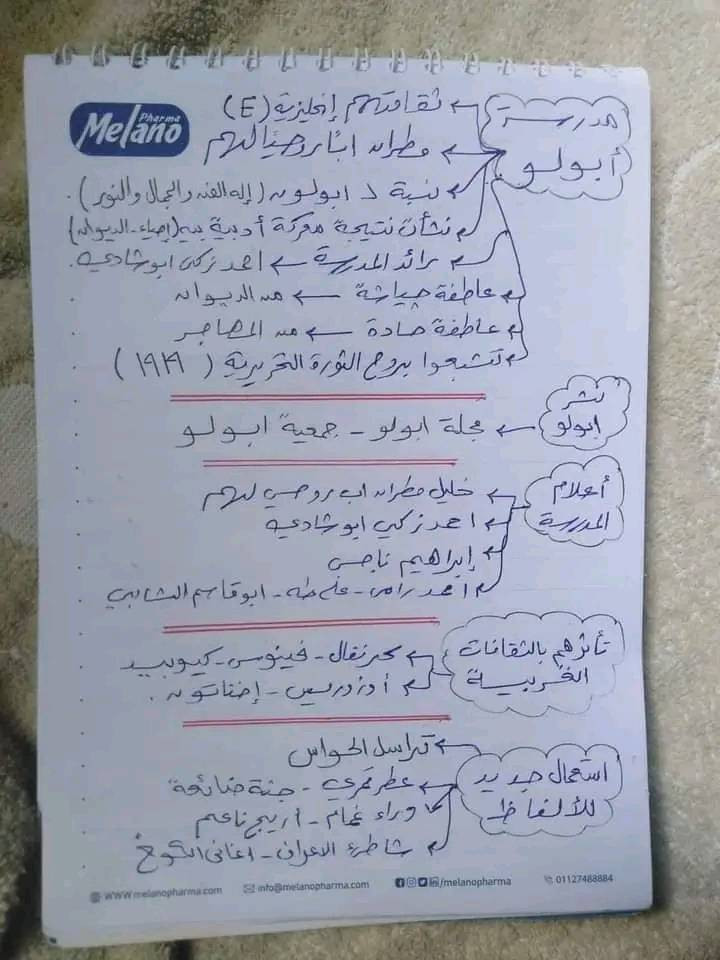 Melano Pharma
مدرسة أبولو
ثقافتهم إنجليزية (E)
مطران أبًا روحيًا لهم
نسبة لـ ابولون (إله الفن والجمال والنور).
نشأت نتيجة معركة أدبية بين (إحياء - الديوان)
رائد المدرسة ← احمد زكي ابو شادي.
عاطفة جياشة ← من الديوان
عاطفة حادة ← من المهاجر
تشبعوا بروح الثورة التحريرية (١٩١٩)
نشر ابولو
مجلة ابولو - جمعية ابولو
أعلام المدرسة
خليل مطران اب روحي لهم
احمد زكي ابو شادي
إبراهيم ناجي
أحمد رامي - علي طه - ابو قاسم الشابي
تأثرهم بالثقافات الغربية
فينوس - كيوبيد
أوزوريس - إخناتون.
استعمال جديد للألفاظ
تراسل الحواس
عطر قمري - جنة ضائعة
وراء غمام - اريج ناعم
شاطئ الاعراف - اغاني الكوخ
WWW.melanopharma.com info@melanopharma.com /melanopharma 01127488884